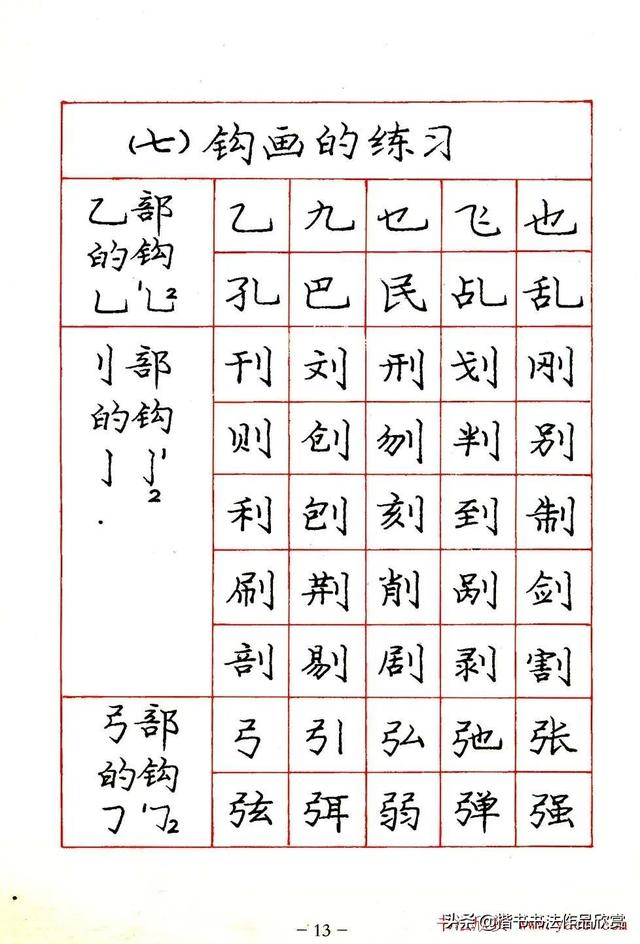 (七)钩画的练习
乙部
的钩
乚 乚12
乙 九 乜 飞 也
孔 巴 民 乩 乱
刂部
的钩
亅 亅12
刊 刘 刑 划 刚
则 创 刎 判 别
利 刨 刻 到 制
刷 荆 削 剐 剑
剖 剔 剧 剥 割
弓部
的钩
㇆ ㇆12
弓 引 弘 弛 张
弦 弭 弱 弹 强
- 13 -
头条@楷书书法作品欣赏